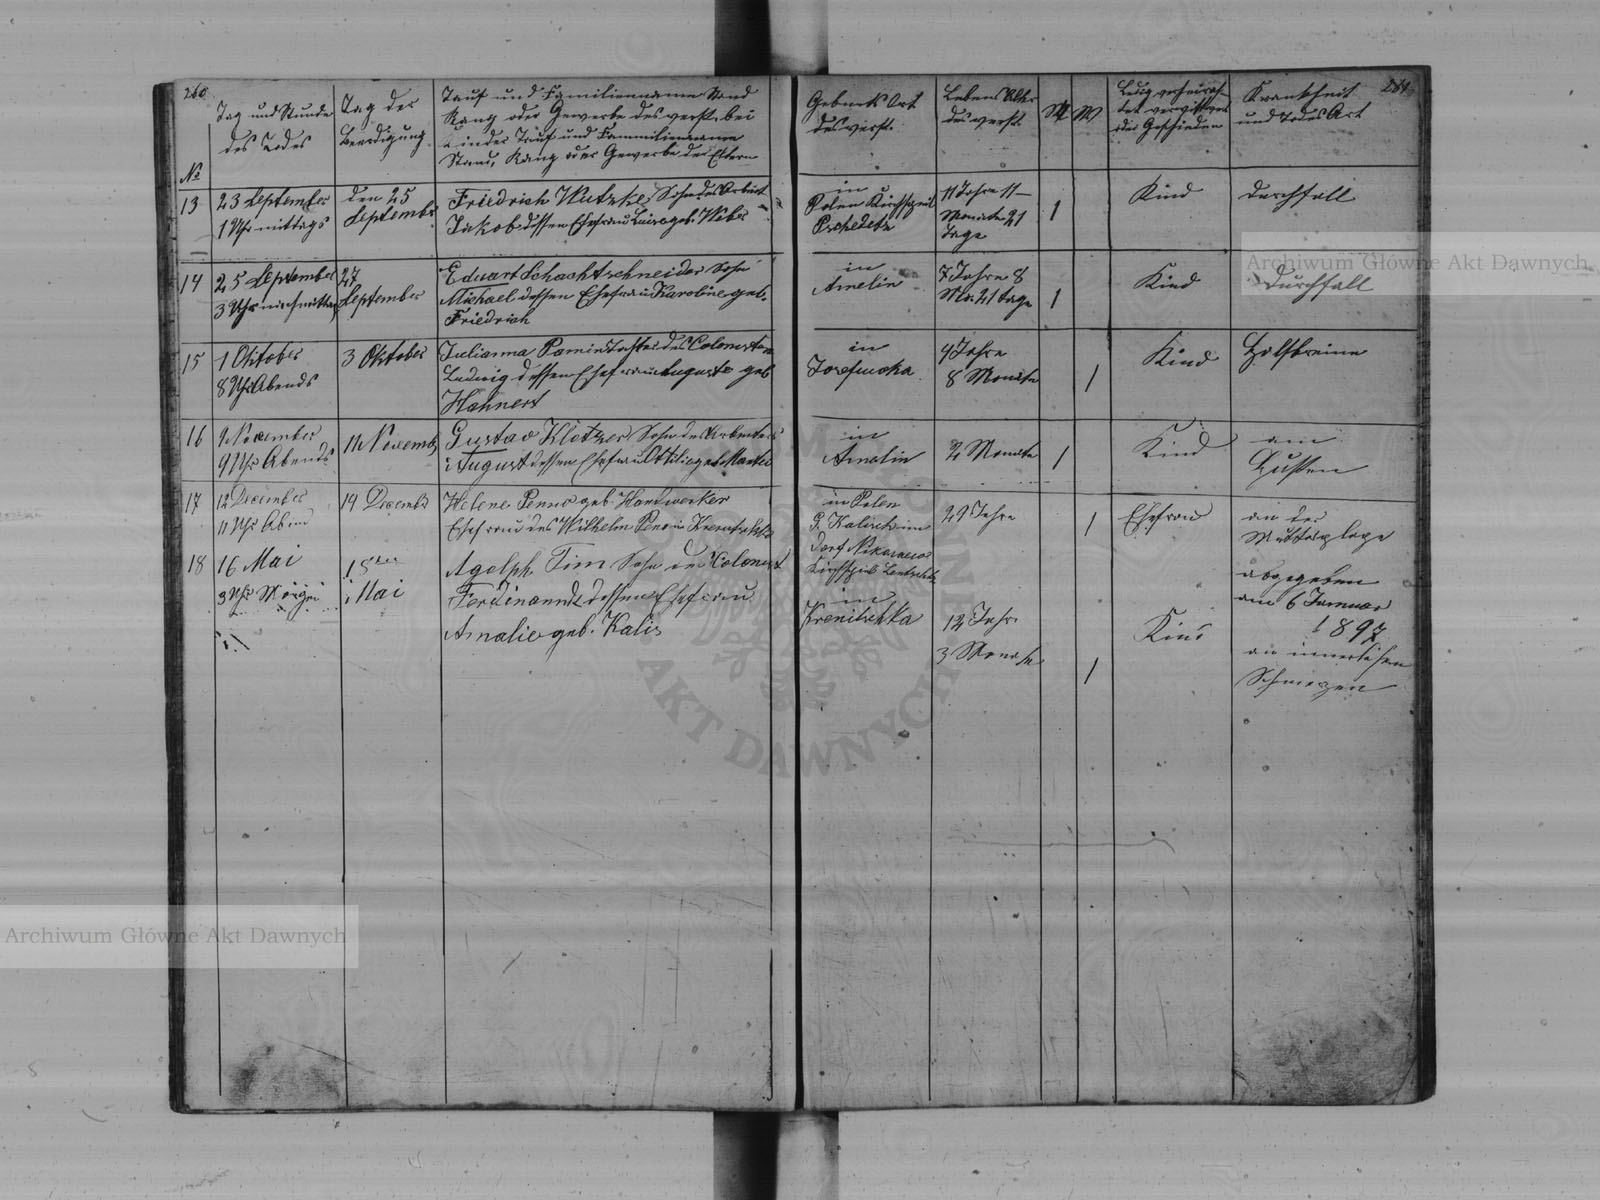 260
№
Tag und Stunde
des Todes
Tag der
Beerdigung
Tauf und Familienname Stand
Rang oder Gewerbe des verst. bei
Kinder Tauf und Fammilienname
Stand, Rang oder Gewerbe der Eltern
Geburts Ort
des verst.
Lebens Alter
des verst.
M
W
Ledig verheirat
tet verwittwet
oder Geschieden
Krankheit
und Todes Art
261
13
23 September
1 Uhr mittags
den 25
September
Friedrich Wutzke Sohn des Arbeit
Jakob dessen Ehefrau Luise geb. Weber
in
Polen Kirchspiel
11 Jahre 11
Monate 21
Tage
1
Kind
Durchfall
14
25 September
3 Uhr nachmittag
27
September
Eduart Schachtschneider Sohn
Michael dessen Ehefrau Karoline geb.
Friedrich
in
Amelin
7 Jahre 8
Mo. 21 tage
1
Kind
Durchfall
15
1 Oktober
8 Uhr Abends
3 Oktober
Julianna Pamin Tochter des Colonisten
Ludwig dessen Ehefrau Auguste geb
Hahnert
in
4 Jahre
8 Monate
1
Kind
Halsbreine
16
9 November
9 Uhr Abends
11 Novemb
Gustav Klotzer Sohn des Arbeiters
August dessen Ehefrau Ottilie geb.
in
Amelin
2 Monate
1
Kind
am
Husten
17
12 December
11 Uhr Abend
14 Decemb
Helene Penno geb. Hartwerker
Ehefrau des Wilhelm Peno in
in Polen
G. Kalisch im
Dorf
Kirchspiel
29 Jahre
1
Ehefrau
an der
Mutterplage
abgegeben
am 6 Januar
1897
18
16 Mai
3 Uhr Morgen
18ten
Mai
Agolph Timm Sohn des Colonist
Ferdinandt dessen Ehefrau
Amalie geb. Kalis
in
Krenitschka
12 Jahr
3 Monate
1
Kind
an innerlichen
Schmerzen
Archiwum Główne Akt Dawnych
Archiwum Główne Akt Dawnych
AKT DAWNYCH